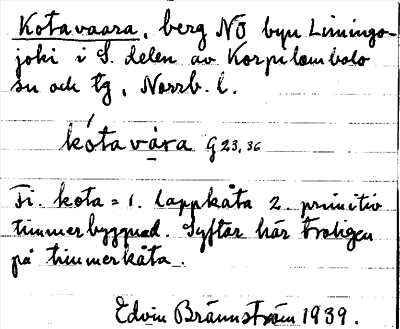 Kotavaara, berg NO byn Liningo-
joki i S. delen av Korpilombolo
sn och tg, Norrb. l.
kótavạra G23,36
Fi. kota = 1. lappkåta 2. primitiv
timmerbyggnad. Syftar här troligen
på timmerkåta.
Edvin Brännström 1939.